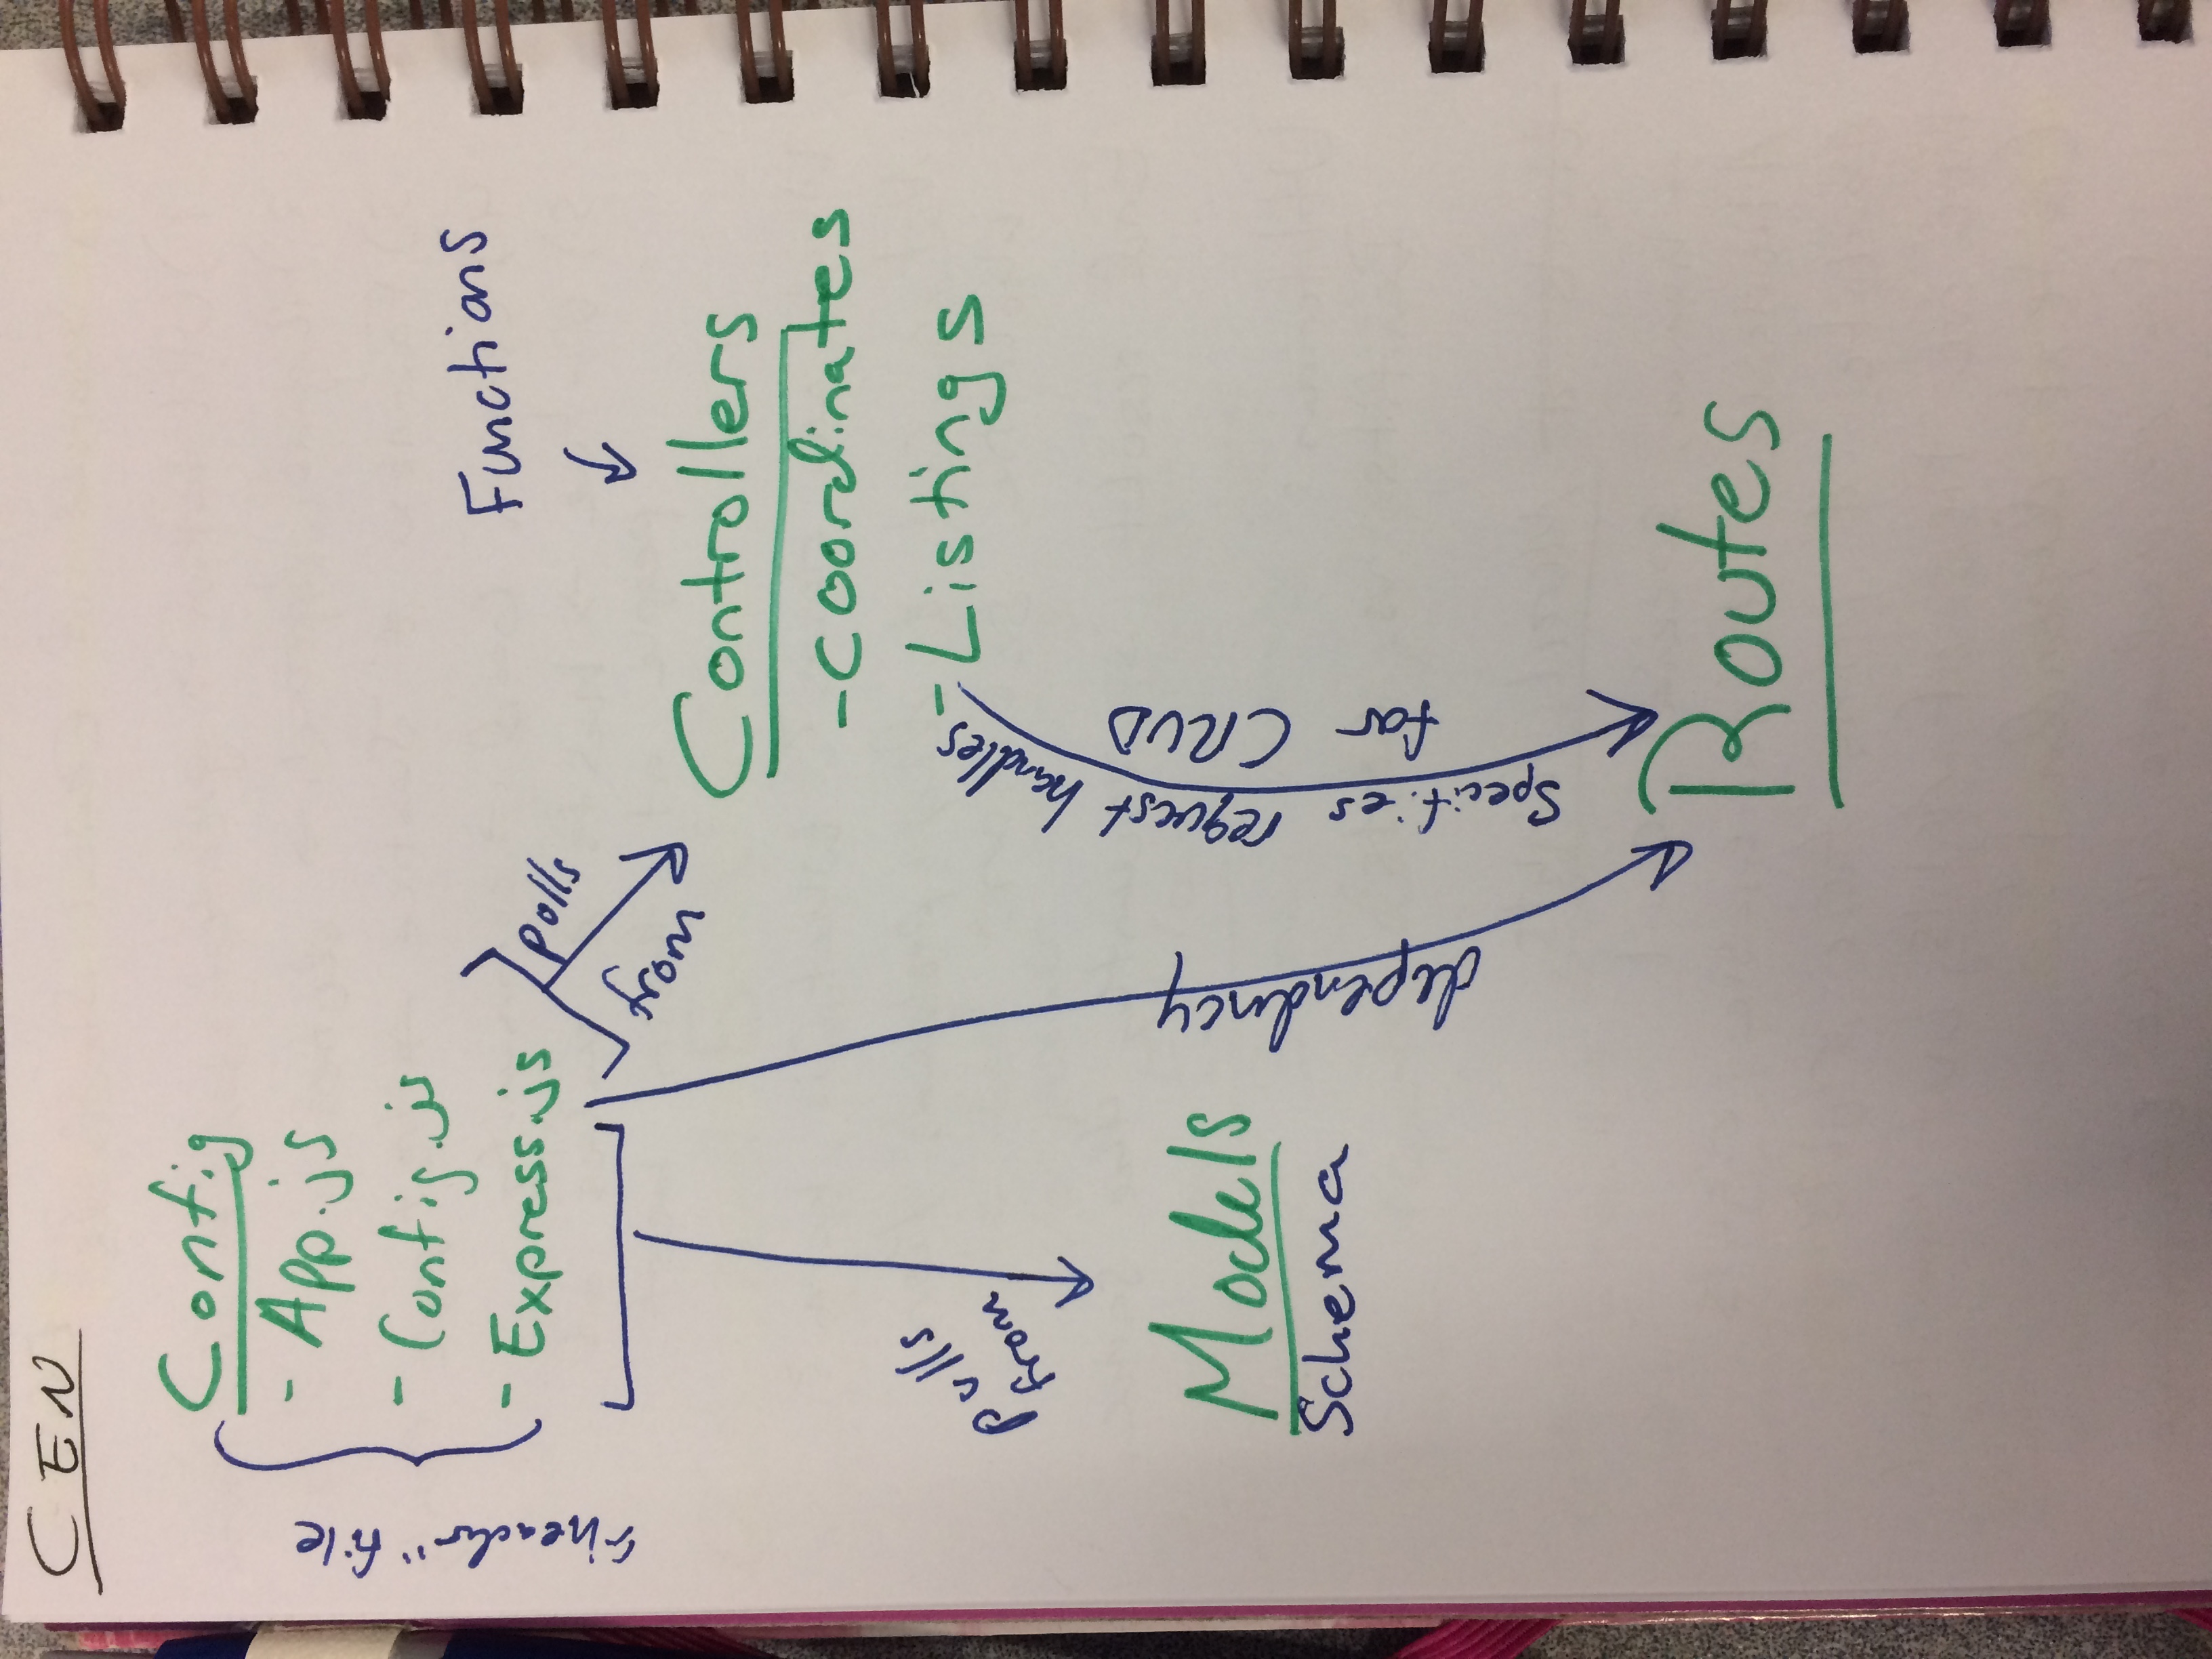 CEN
Config
- App.js
- Config.js
- Express.js
"header" file
pulls
from
Functions
Controllers
- coordinates
- Listings
pulls
from
Models
Schema
dependency
Specifies request handles
for CRUD
Routes